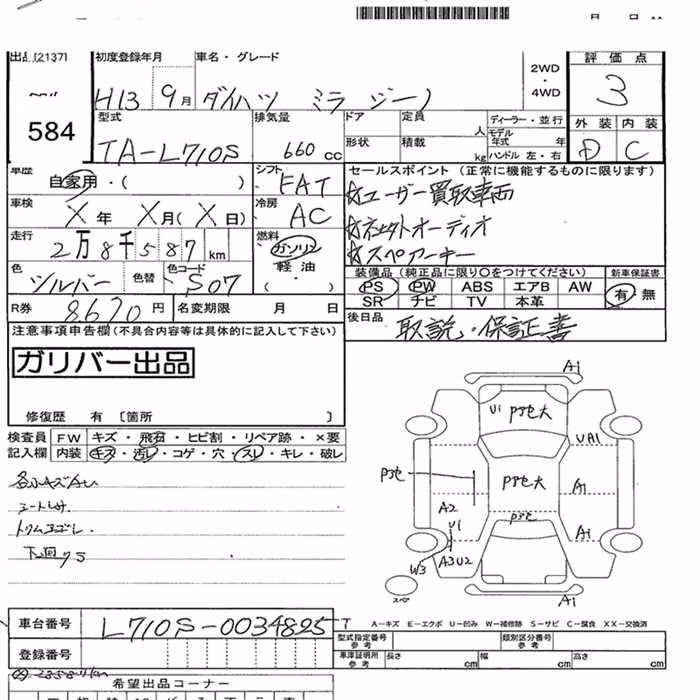 月 日
出品 (2137)
584
初度登録年月
H13 9月
車名・グレード
ダイハツ ミラ ジーノ
2WD
・
4WD
評価点
3
外装 内装
D C
型式
TA-L710S
排気量
660 cc
ドア
形状
定員 人
積載 kg
ディーラー・並行
モデル年式 年
ハンドル 左・右
車歴
自家用・( )
シフト
FAT
車検
X年 X月(X日)
冷房
AC
走行
2万8千587km
燃料
ガソリン
軽油
・( )
色
シルバー
色替
色コード
S07
R券 8670円
名変期限 月 日
セールスポイント(正常に機能するものに限ります)
☆ユーザー買取車両
☆社外オーディオ
☆スペアーキー
装備品(純正品に限り○をつけてください)
PS PW ABS エアB AW
SR ナビ TV 本革
新車保証書
有・無
後日品
取説・保証書
注意事項申告欄(不具合内容等は具体的に記入して下さい)
ガリバー出品
修復歴 有 〔箇所 〕
検査員記入欄
FW キズ・飛石・ヒビ割・リペア跡・×要
内装 キズ・汚レ・コゲ・穴・スレ・キレ・破レ
トリムヨゴレ.
下回りS
A1
U1
P3セ大
UA1
P3セ
P3セ大
A1
A2
P3セ
U1
A1
W3
A3U2
スペア
A1
A-キズ E-エクボ U-凹み W-補修跡 S-サビ C-腐食 XX-交換済
車台番号
L710S-0034825
登録番号
型式指定番号 参考
類別区分番号 参考
車庫証明所 参考
長さ cm 幅 cm 高さ cm
希望出品コーナー